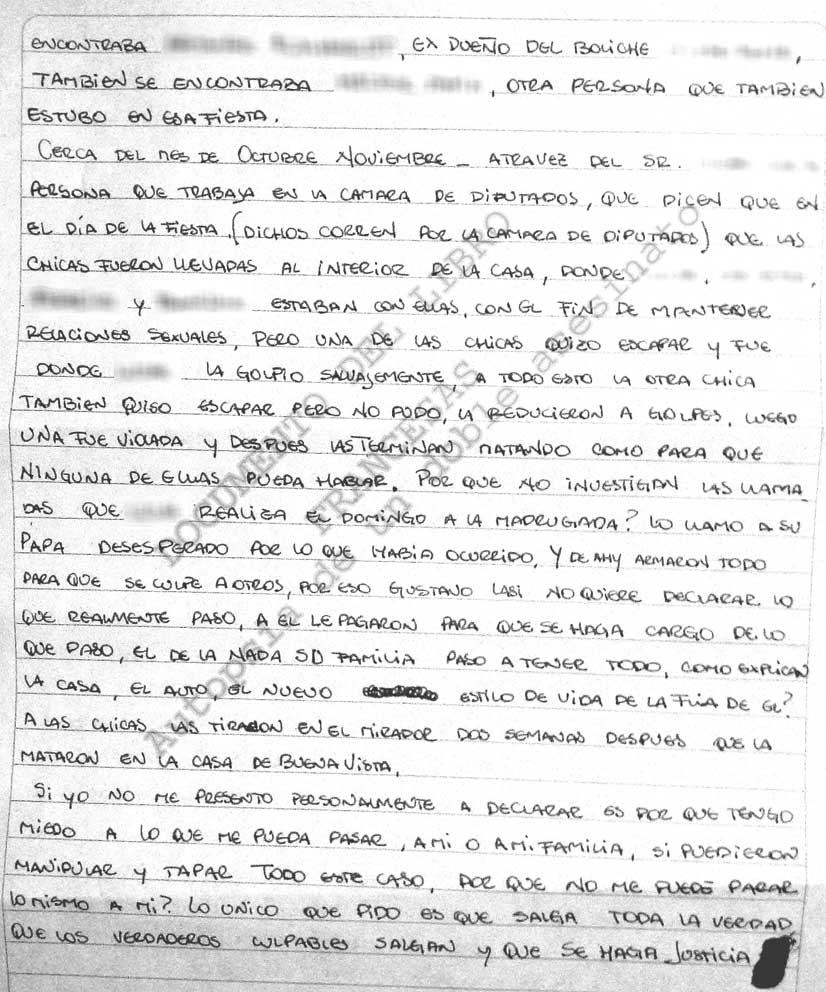 ENCONTRABA , EX DUEÑO DEL BOLICHE ,
TAMBIEN SE ENCONTRABA , OTRA PERSONA QUE TAMBIEN
ESTUBO EN ESA FIESTA.
CERCA DEL MES DE OCTUBRE NOVIEMBRE - ATRAVEZ DEL SR.
PERSONA QUE TRABAJA EN LA CAMARA DE DIPUTADOS, QUE DICEN QUE EN
EL DÍA DE LA FIESTA (DICHOS CORREN POR LA CAMARA DE DIPUTADOS) QUE LAS
CHICAS FUERON LLEVADAS AL INTERIOR DE LA CASA, DONDE ,
Y ESTABAN CON ELLAS, CON EL FIN DE MANTENER
RELACIONES SEXUALES, PERO UNA DE LAS CHICAS QUIZO ESCAPAR Y FUE
DONDE LA GOLPIO SALVAJEMENTE, A TODO ESTO LA OTRA CHICA
TAMBIEN QUISO ESCAPAR PERO NO PUDO, LA REDUCIERON A GOLPES, LUEGO
UNA FUE VIOLADA Y DESPUES LAS TERMINAN MATANDO COMO PARA QUE
NINGUNA DE ELLAS PUEDA HABLAR. POR QUE NO INVESTIGAN LAS LLAMA
DAS QUE REALIZA EL DOMINGO A LA MADRUGADA? LO LLAMO A SU
PAPA DESESPERADO POR LO QUE HABIA OCURRIDO, Y DE AHY ARMARON TODO
PARA QUE SE CULPE A OTROS, POR ESO GUSTAVO LASI NO QUIERE DECLARAR LO
QUE REALMENTE PASO, A EL LE PAGARON PARA QUE SE HAGA CARGO DE LO
QUE PASO, EL DE LA NADA SU FAMILIA PASO A TENER TODO, COMO EXPLICAN
LA CASA, EL AUTO, EL NUEVO ESTILO DE VIDA DE LA FLIA DE EL?
A LAS CHICAS LAS TIRARON EN EL MIRADOR DOS SEMANAS DESPUES QUE LA
MATARON EN LA CASA DE BUENA VISTA.
SI YO NO ME PRESENTO PERSONALMENTE A DECLARAR ES POR QUE TENGO
MIEDO A LO QUE ME PUEDA PASAR, A MI O A MI FAMILIA, SI PUDIERON
MANIPULAR Y TAPAR TODO ESTE CASO, POR QUE NO ME PUEDE PASAR
LO MISMO A MI? LO UNICO QUE PIDO ES QUE SALGA TODA LA VERDAD
QUE LOS VERDADEROS CULPABLES SALGAN Y QUE SE HAGA JUSTICIA
DOCUMENTO DEL LIBRO
FRANCESAS
Autopsia de un doble asesinato